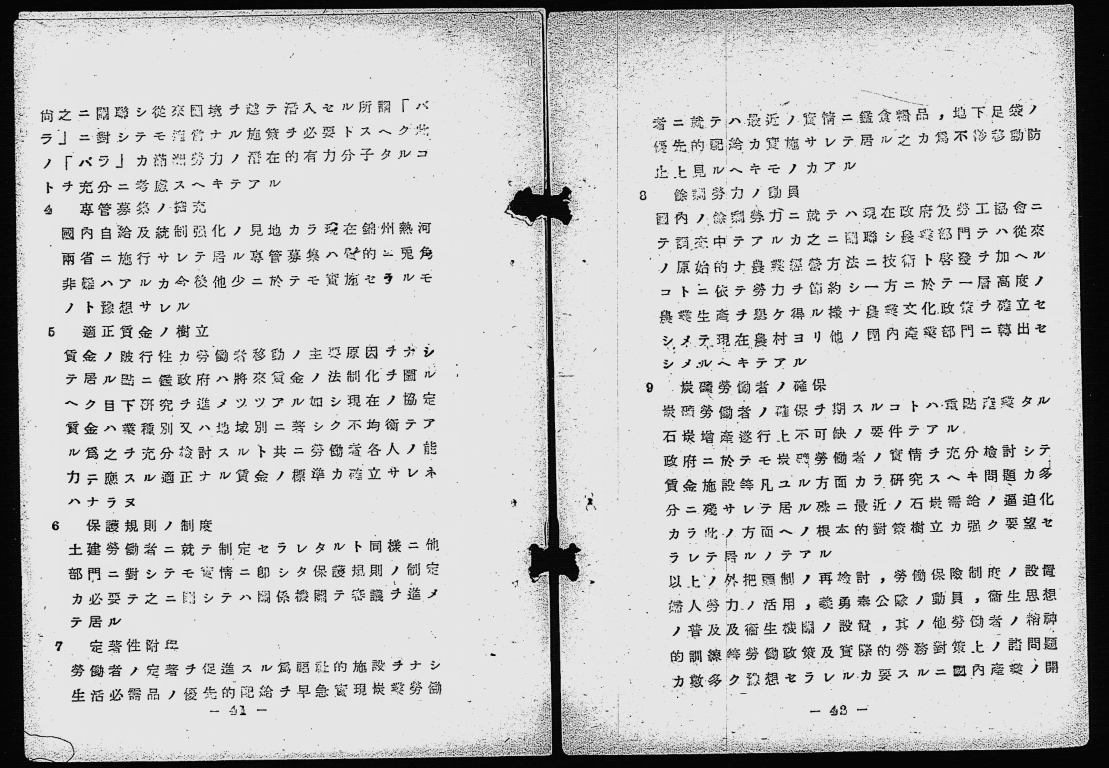 尙之ニ關聯シ從來國境ヲ越テ潛入セル所謂「バ
ラ」ニ對シテモ適當ナル施策ヲ必要トスヘク此
ノ「バラ」カ滿洲勞力ノ潛在的有力分子タルコ
トヲ充分ニ考慮スヘキテアル
4 專管募集ノ擴充
國內自給及統制强化ノ見地カラ現在錦州熱河
兩省ニ施行サレテ居ル專管募集ハ的ニ兎角
非難ハアルカ今後他少ニ於テモ實施セラルモ
ノト豫想サレル
5 適正賃金ノ樹立
賃金ノ跛行性カ勞働者移動ノ主要原因ヲナシ
テ居ル點ニ鑑政府ハ將來賃金ノ法制化ヲ圖ル
ヘク目下硏究ヲ進メツツアル如シ現在ノ協定
賃金ハ業種別又ハ地域別ニ著シク不均衡テア
ル爲之ヲ充分檢討スルト共ニ勞働者各人ノ能
力ニ應スル適正ナル賃金ノ標準カ確立サレネ
ハナラヌ
6 保護規則ノ制度
土建勞働者ニ就テ制定セラレタルト同樣ニ他
部門ニ對シテモ實情ニ卽シタ保護規則ノ制定
カ必要テ之ニ關シテハ關係機關テ審議ヲ進メ
テ居ル
7 定著性附與
勞働者ノ定著ヲ促進スル爲福祉的施設ヲナシ
生活必需品ノ優先的配給ヲ早急實現炭礦勞働
— 41 —
者ニ就テハ最近ノ實情ニ鑑食糧品,地下足袋ノ
優先的配給カ實施サレテ居ル之カ爲不移動防
止上見ルヘキモノカアル
8 餘剩勞力ノ動員
國內ノ餘剩勞力ニ就テハ現在政府及勞工協會ニ
テ調査中テアルカ之ニ關聯シ農業部門テハ從來
ノ原始的ナ農業經營方法ニ技術ト啓發ヲ加ヘル
コトニ依テ勞力ヲ節約シ一方ニ於テ一層高度ノ
農業生產ヲ擧ケ得ル樣ナ農業文化政策ヲ確立セ
シメテ現在農村ヨリ他ノ國內產業部門ニ轉出セ
シメルヘキテアル
9 炭礦勞働者ノ確保
炭礦勞働者ノ確保ヲ期スルコトハ重點產業タル
石炭增產遂行上不可缺ノ要件テアル
政府ニ於テモ炭礦勞働者ノ實情ヲ充分檢討シテ
賃金施設等凡ユル方面カラ硏究スヘキ問題カ多
分ニ殘サレテ居ル殊ニ最近ノ石炭需給ノ逼迫化
カラ此ノ方面ヘノ根本的對策樹立カ强ク要望セ
ラレテ居ルノテアル
以上ノ外把頭制ノ再檢討,勞働保險制度ノ設置
婦人勞力ノ活用,義勇奉公隊ノ動員,衞生思想
ノ普及及衞生機關ノ設置,其ノ他勞働者ノ精神
的訓練等勞働政策及實際的勞務對策上ノ諸問題
カ數多ク豫想セラレルカ要スルニ國內產業ノ開
— 42 —